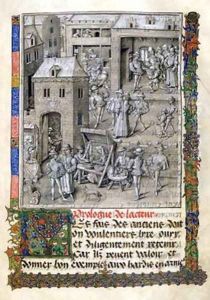 Prologue De lacteur
Les fais des anciens doit
on voulentiers lyre ouyr
et diligentement retenir
Car ilz peuent valoir et
donner bon exemple aux hardis en arme